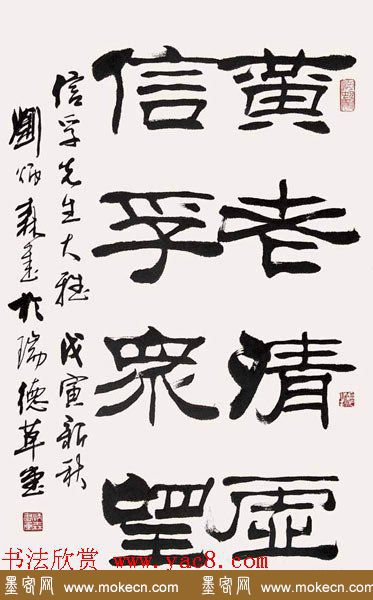 黃老清虛
信孚眾望
信孚先生大雅 戊寅新秋
劉炳森書於瑞德草堂
书法欣赏 www.yac8.com
墨客网 www.mokecn.com 墨客网 www.mokecn.com